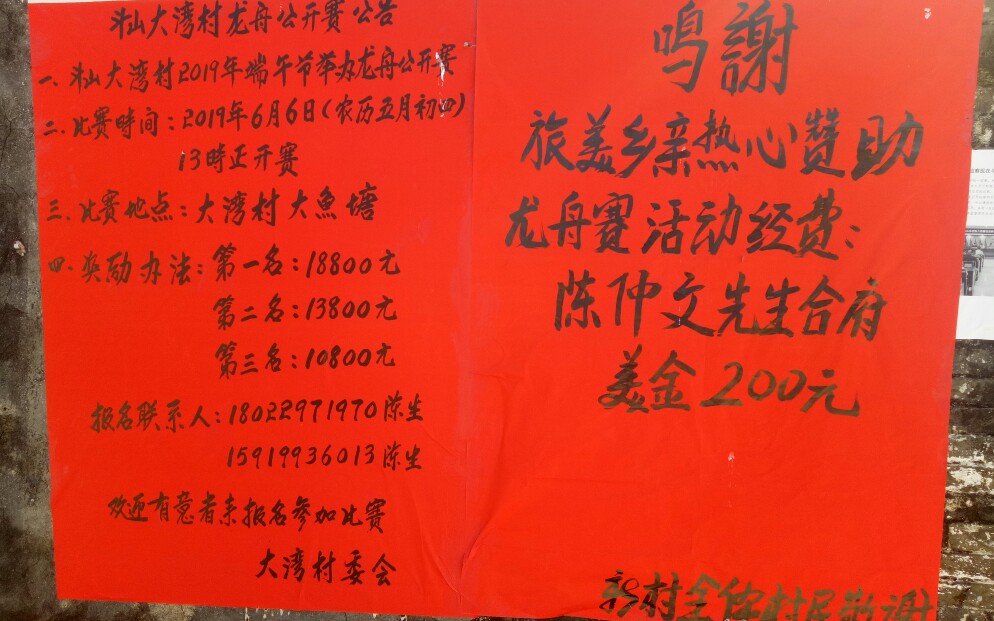 斗山大湾村龙舟公开赛公告
一、斗山大湾村2019年端午节举办龙舟公开赛
二、比赛時间：2019年6月6日（农历五月初四）
13時正开赛
三、比赛地点：大湾村大魚塘
四、奖励办法：第一名：18800元
第二名：13800元
第三名：10800元
报名联系人：18022971970陈生
15919936013陈生
欢迎有意者来报名参加比赛
大湾村委会
鸣謝
旅美乡亲热心赞助
龙舟赛活动经费：
陈仲文先生合府
美金200元
新村全体村民敬谢